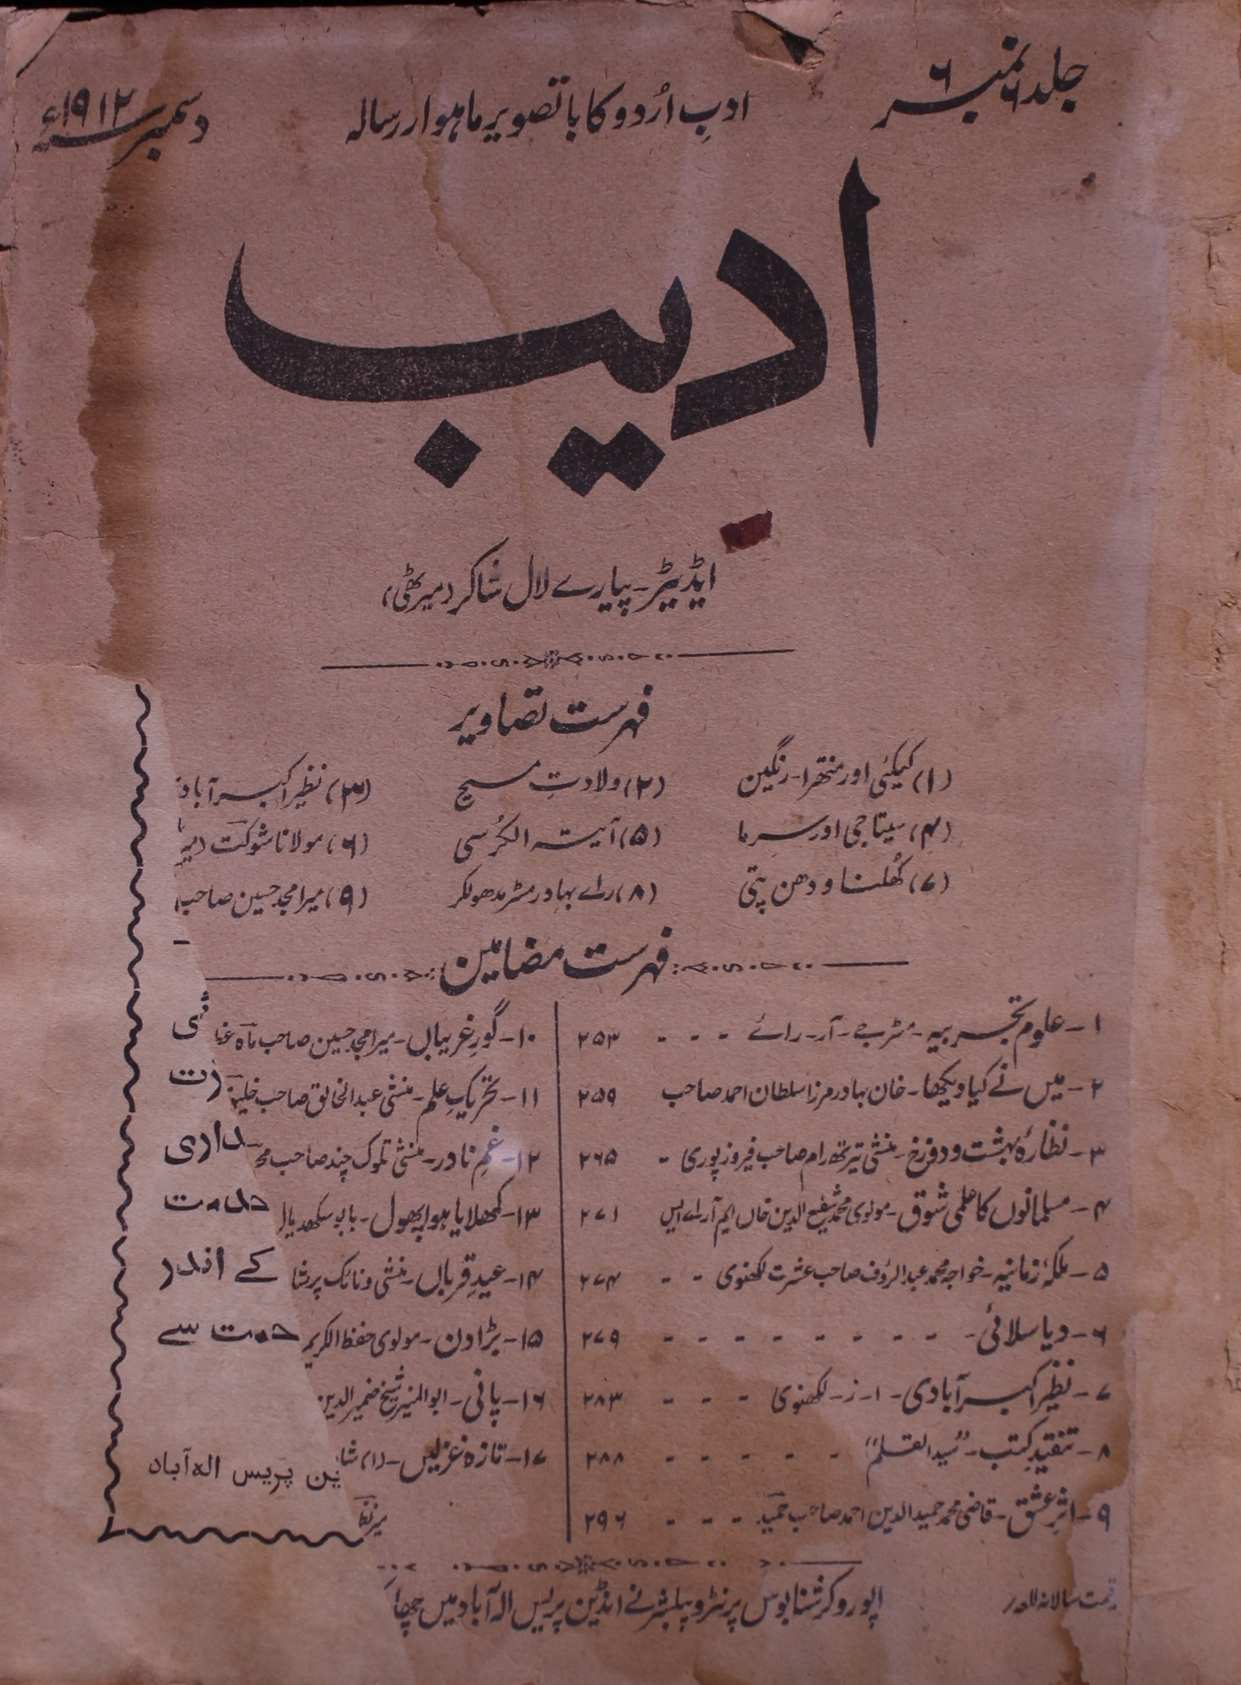 جلد ۶ نمبر ۶
ادبِ اُردو کا باتصویر ماہوار رسالہ
دسمبر سنہ ۱۹۱۲ء
ادیب
ایڈیٹر۔ پیارے لال شاکر (میرٹھی)
فہرست تصاویر
(۱) کیکئی اور منتھرا۔ رنگین (۲) ولادتِ مسیح (۳) نظیر اکبر آباد
(۴) سیتا جی اور سرما (۵) آیتہ الکرسی (۶) مولانا شوکت
(۷) کُھلنا و دھن پتی (۸) راے بہادر مسٹر مدھولکر (۹) میر امجد حسین صاحب
فہرست مضامین
۱۔ علوم تجربیہ۔ مسٹر جے۔ آر۔ رائے - - - ۲۵۳
۲۔ میں نے کیا دیکھا۔ خان بہادر مرزا سلطان احمد صاحب ۲۵۹
۳۔ نظارۂ بہشت و دوزخ۔ منشی تیرتھ رام صاحب فیروز پوری - ۲۶۵
۴۔ مسلمانوں کا علمی شوق۔ مولوی محمد شفیع الدین خاں ایم آر اے ایس ۲۷۱
۵۔ ملکۂ زمانیہ۔ خواجہ محمد عبد الرؤف صاحب عشرت لکھنوی - - ۲۷۴
۶۔ دیا سلائی۔ - - - - - - - - ۲۷۹
۷۔ نظیر اکبر آبادی۔ ا۔ ز۔ لکھنوی - - - ۲۸۳
۸۔ تنقید کتب۔ "سید القلم" - - - - - ۲۸۸
۹۔ اثر عشق۔ قاضی محمد حمید الدین احمد صاحب حمید - - - ۲۹۶
۱۰۔ گورِ غریباں۔ میر امجد حسین صاحب
۱۱۔ تحریکِ علم۔ منشی عبد الخالق صاحب
۱۲۔ غمِ نادر۔ منشی تلوک چند صاحب مح داری
۱۳۔ کمھلایا ہوا پھول۔ بابو
۱۴۔ عیدِ قرباں۔ منشی ونائک پرشا کے اندر
۱۵۔ بڑا دن۔ مولوی حفظ الکریم سے
۱۶۔ پانی۔ ابو المنیر شیخ ضمیر الدین
۱۷۔ تازہ غزلیں۔ (۱) شا ین پریس الہ آباد
قیمت سالانہ
اپورو کرشنا بوس پرنٹر و پبلشر نے انڈین پریس الہ آباد میں چھاپا